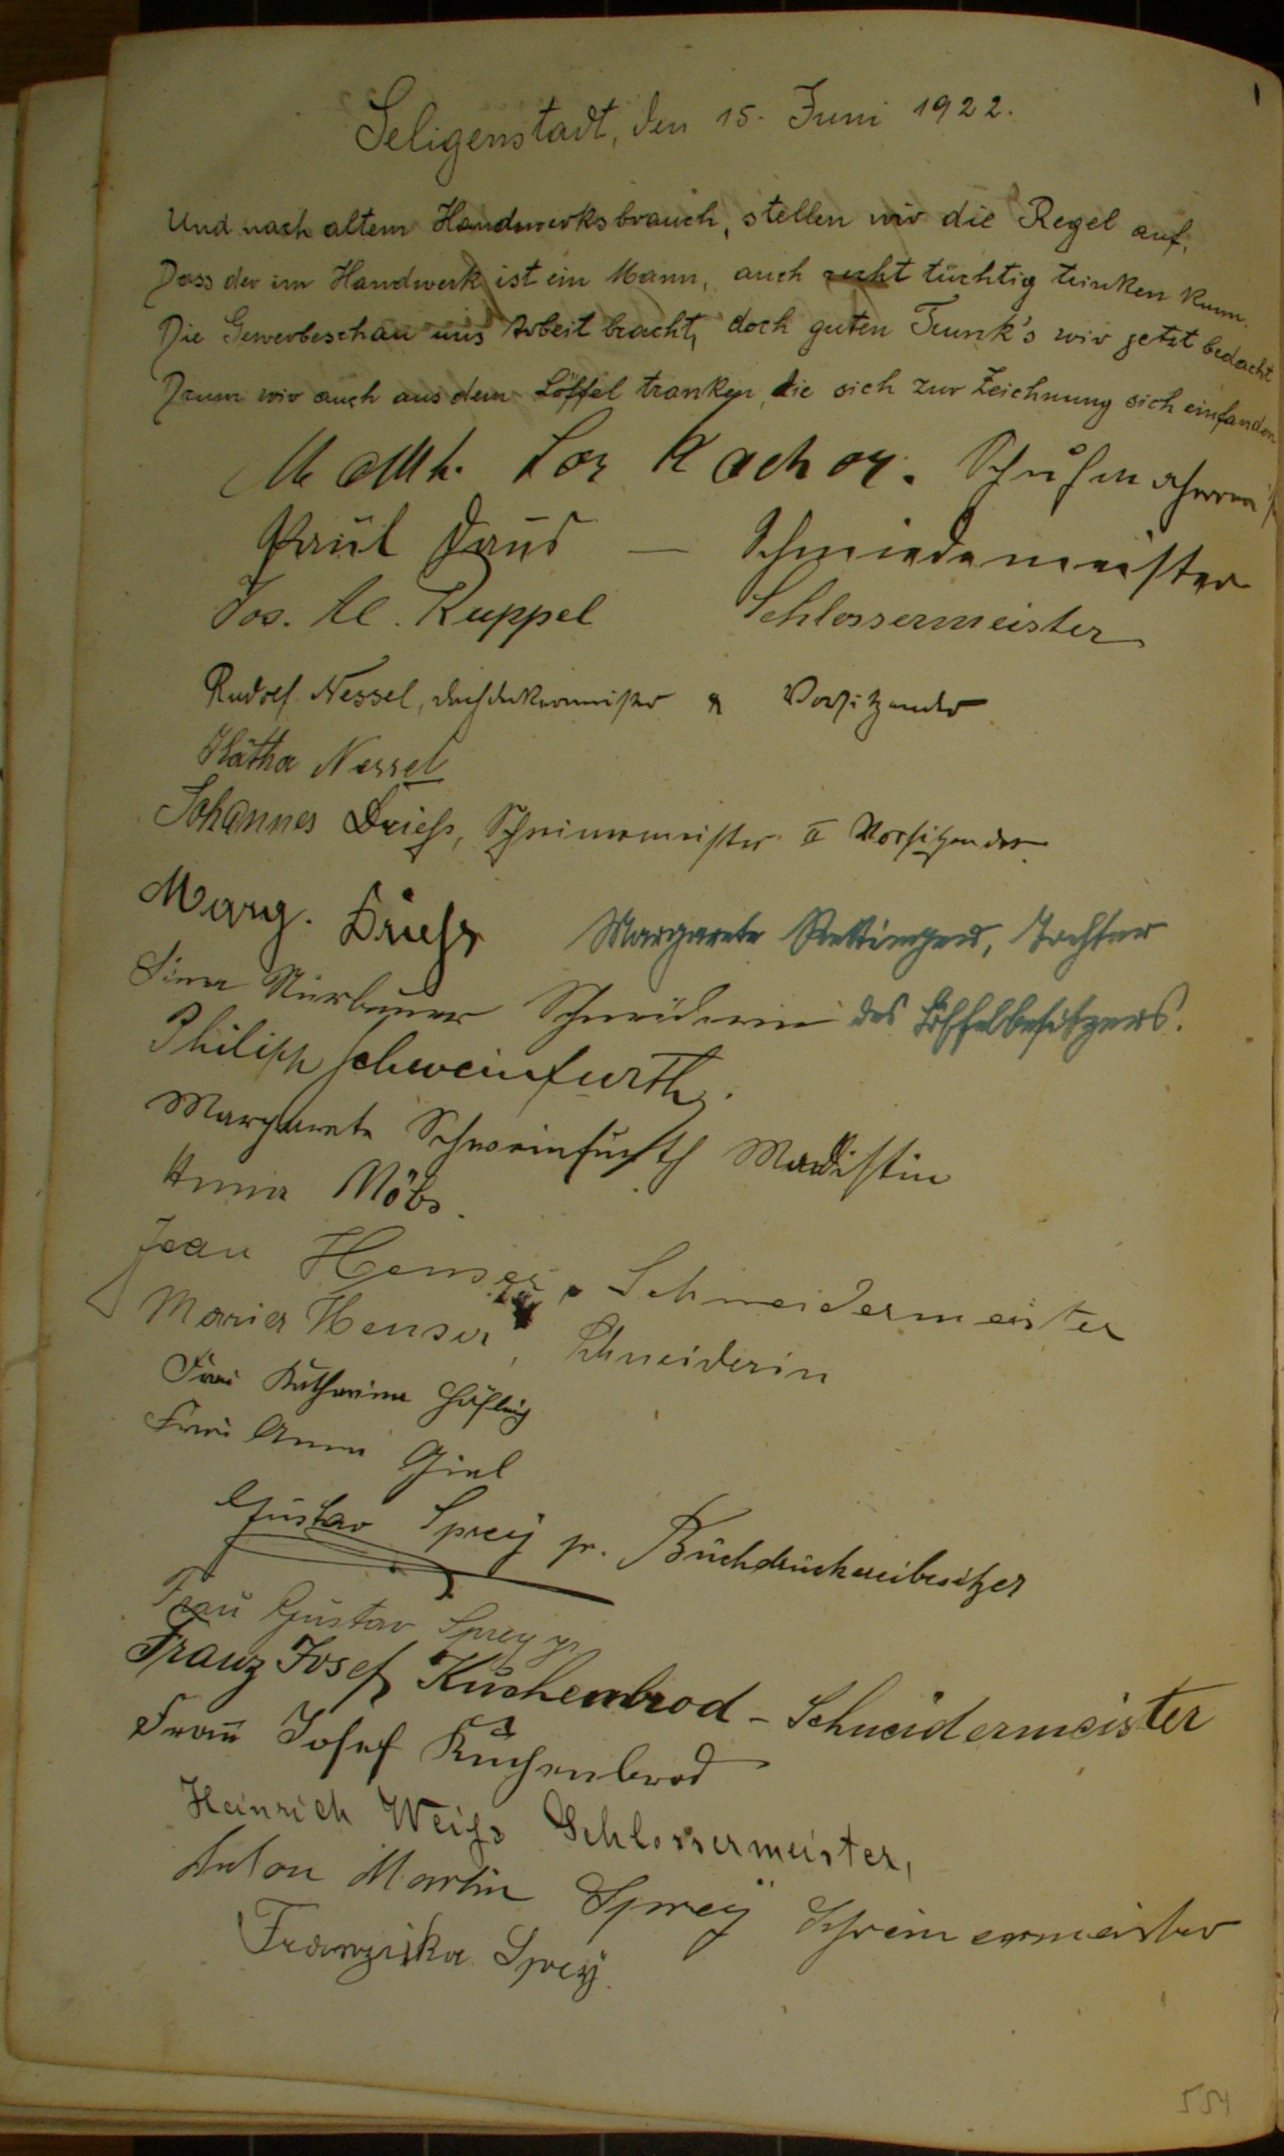 Seligenstadt, den 15. Juni 1922.
Und nach altem Handwerksbrauch, stellen wir die Regel auf,
Dass der im Handwerk ist ein Mann, auch recht tüchtig trinken kann.
Die Gewerbeschau uns Arbeit bracht, doch guten Trunk's wir jetzt bedacht
Drum wir auch aus dem Löffel tranken, die sich zur Zeichnung sich einfanden
Math. Lor Kachor.
Paul Daus — Schmiedemeister
Jos. Al. Ruppel Schlossermeister
Rudolf Nessel, Dachdeckermeister & Vorsitzender
Kätha Nessel
Johannes Driess, Schreinermeister II Vorsitzender
Marg. Driess
Margarete Rettinger, Tochter
des Löffelbesitzers.
Schneiderin
Philipp Schweinfurth.
Margarete Schweinfurth Modistin
Anna Möbs.
Jean Henser, Schneidermeister
Maria Henser, Schneiderin
Frau Katharina Höfling
Frau Anna Giel
Gustav Spreÿ jr. Buchdruckereibesitzer
Frau Gustav Sprey jr
Franz Josef Kuchenbrod - Schneidermeister
Frau Josef Kuchenbrod
Heinrich Weiss Schlossermeister,
Anton Martin Spreÿ Schreinermeister
Franziska Spreÿ.
554